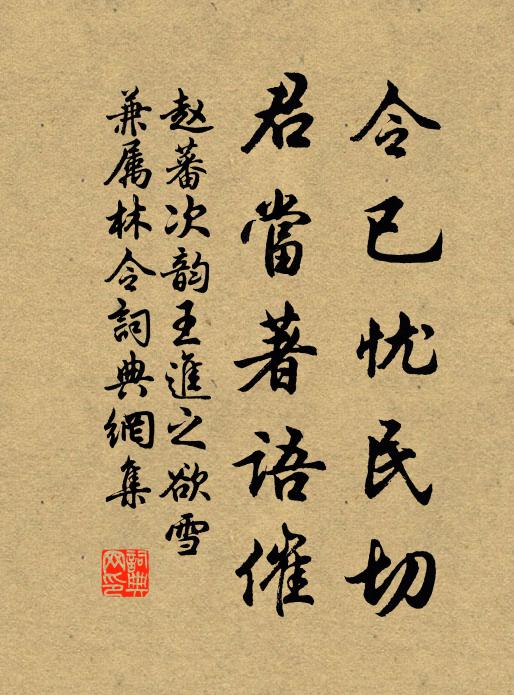 令已忧民切
君當著語催
赵蕃次韵王進之欲雪
兼属林令詞典網集
詞典網印